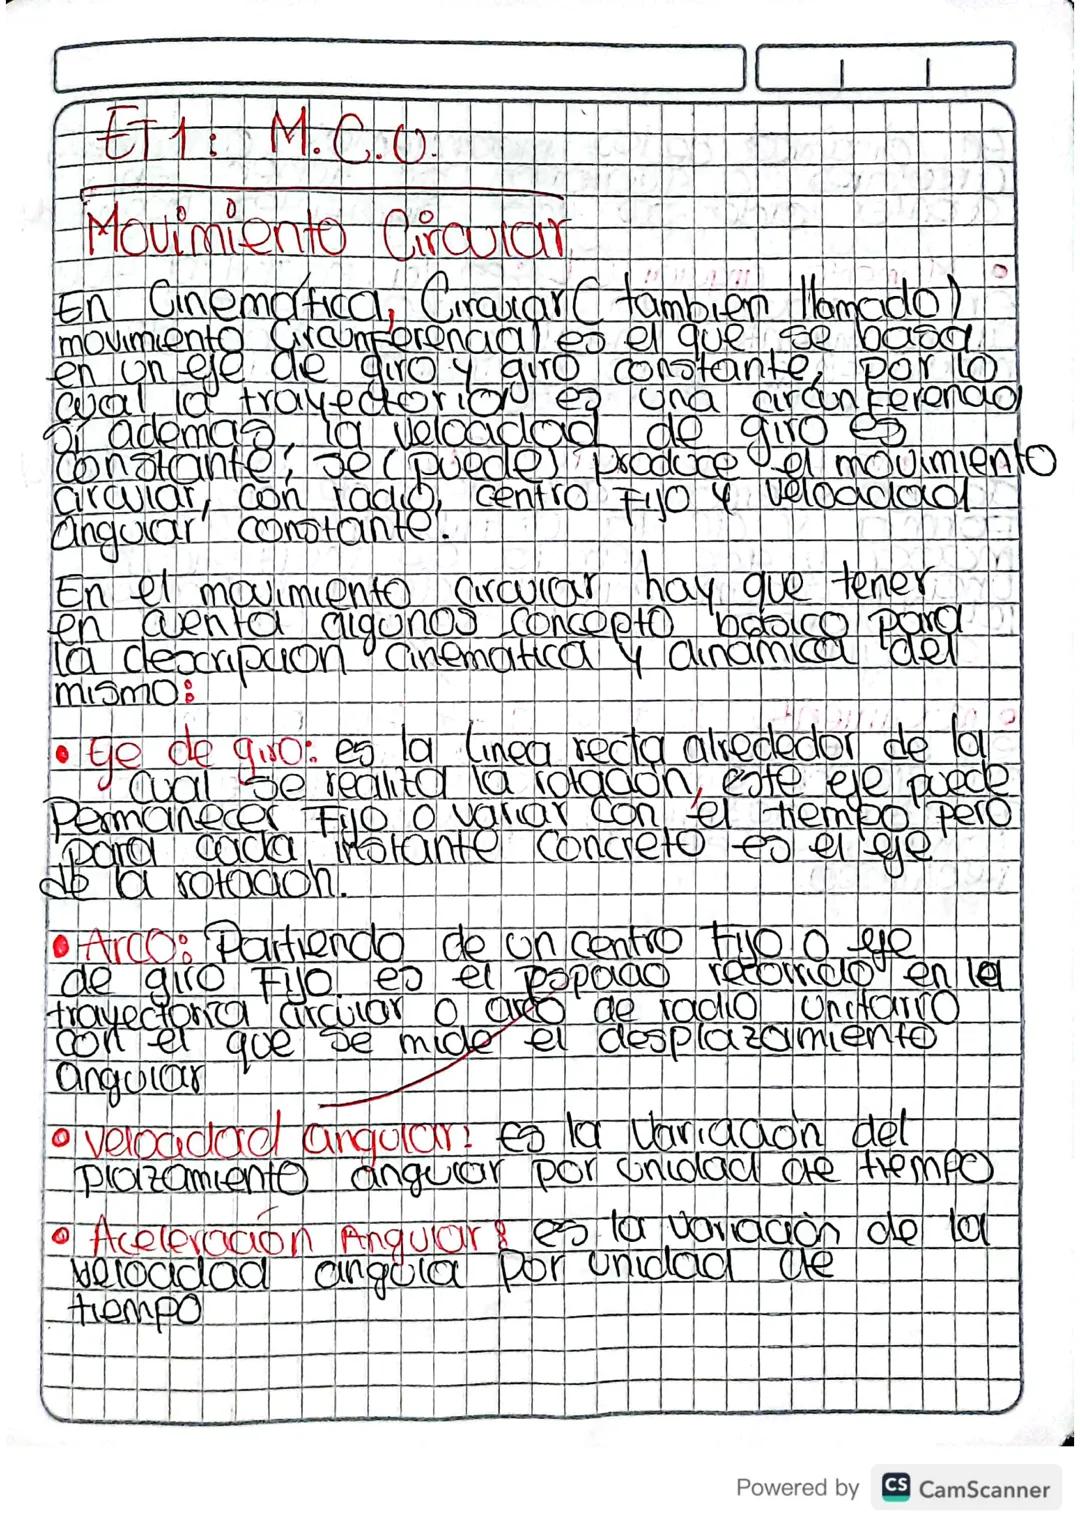 ET1: M.C.U.
Movimiento Circular
En Cinemática, Circular ( tambien llamado)
movimiento Circunferencial es el que se basa
en un eje de giro y giro constante, por lo
cual la trayectoria es una circunferencia
si ademas, la velocidad de giro es
constante, se (puede) produce el movimiento
circular, con radio, centro Fijo y velocidad
angular constante.
En el movimiento circular hay que tener
en cuenta algunos concepto básico para
la descripcion cinematica y dinámica del
mismo:
• Eje de giro: es la linea recta alrededor de la
cual se realita la rotación, este eje puede
Permanecer Fijo o variar con el tiempo pero
para cada instante concreto es el eje
de la rotación.
• Arco: Partiendo de un centro Fijo o eje
de giro Fijo es el espacio recorrido en la
trayectoria circular o arco de radio Unitario
con el que se mide el desplazamiento
angular
• velocidad angular: es la Variación del
plazamiento angular por unidad de tiempo
• Aceleración Angular: es la variación de la
velocidad angula por unidad de
tiempo
Powered by CS CamScanner